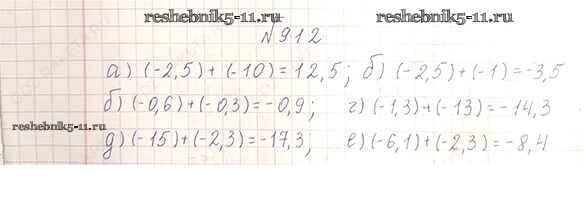 reshebnik5-11.ru reshebnik5-11.ru
№912
а) (-2,5) + (-10) = 12,5; б) (-2,5)+(-1)=-3,5
б) (-0,6)+(-0,3)=-0,9; г) (-1,3)+(-13)=-14,3
reshebnik5-11.ru
д) (-15)+(-2,3)=-17,3; е) (-6,1)+(-2,3)=-8,4